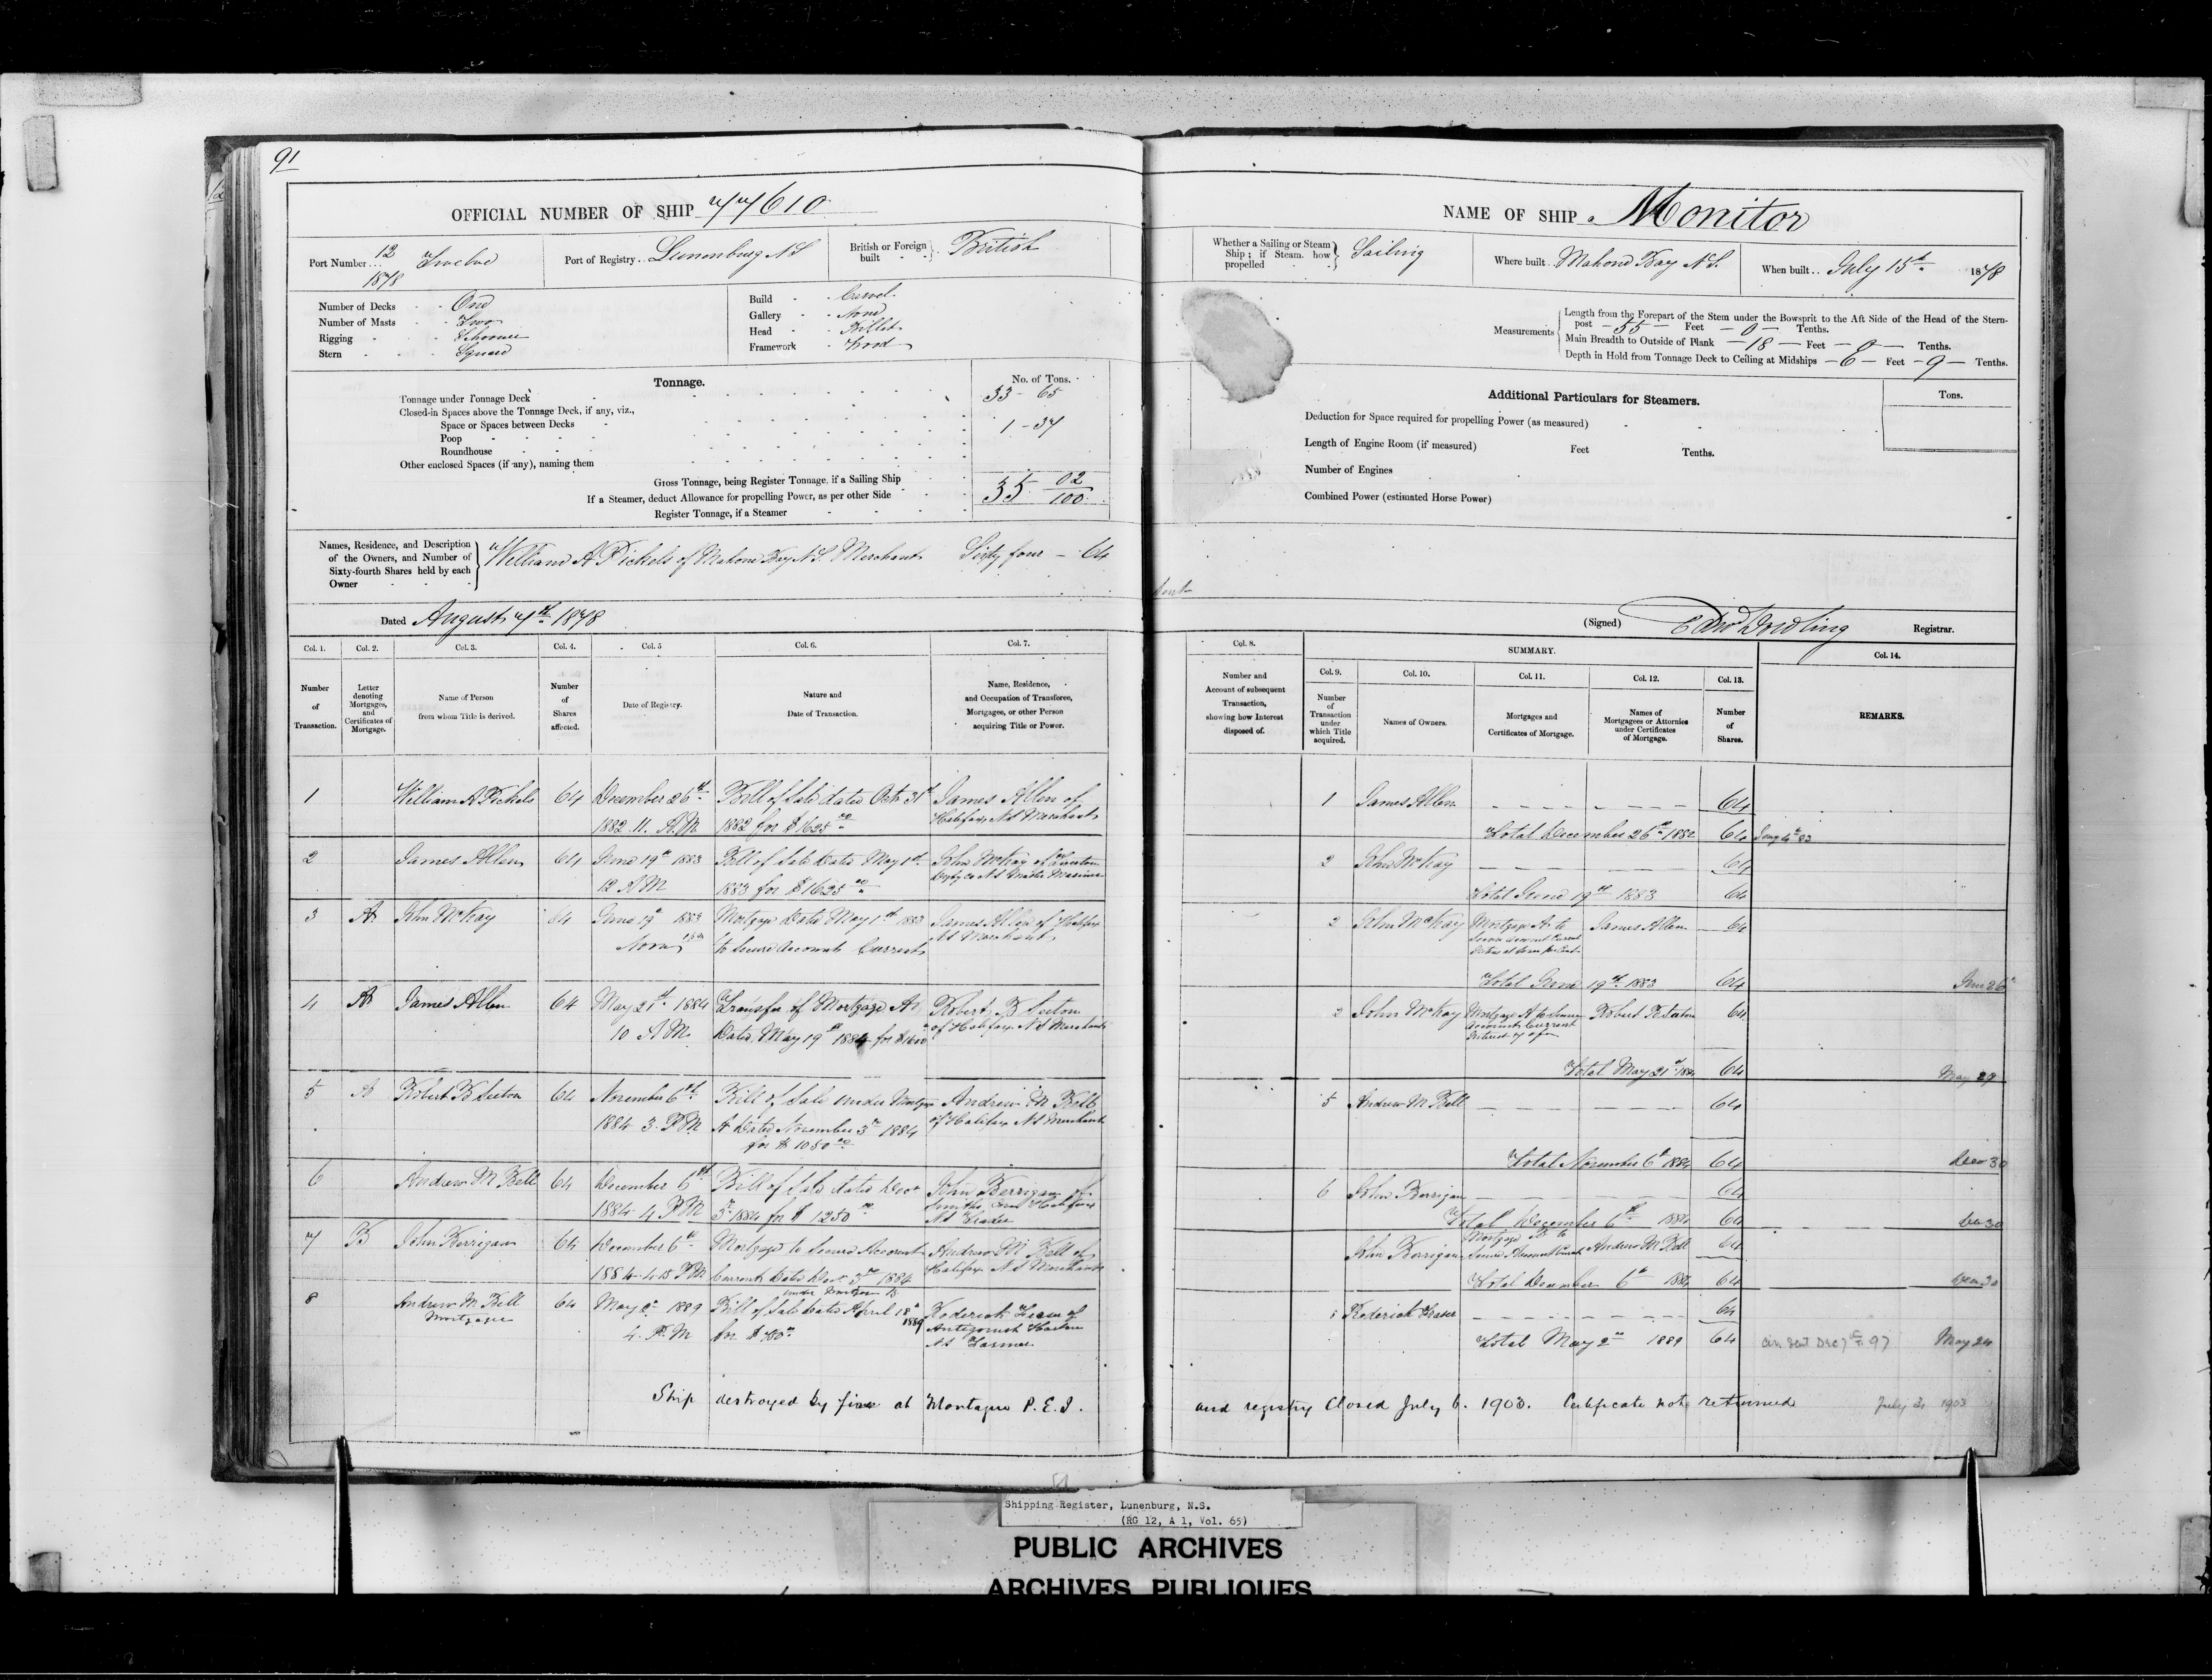 91
OFFICIAL NUMBER OF SHIP 77610
Port Number 12 1878 Twelve
Port of Registry Lunenburg N S
British or Foreign built British
Number of Decks One
Number of Masts Two
Rigging Schooner
Stern Square
Build Carvel
Gallery None
Head Billet
Framework Wood
Tonnage.
No. of Tons.
Tonnage under Tonnage Deck 33-65
Closed-in Spaces above the Tonnage Deck, if any, viz.,
Space or Spaces between Decks 1-37
Poop
Roundhouse
Other enclosed Spaces (if any), naming them
Gross Tonnage, being Register Tonnage, if a Sailing Ship 35 02/100
If a Steamer, deduct Allowance for propelling Power, as per other Side
Register Tonnage, if a Steamer
Names, Residence, and Description of the Owners, and Number of Sixty-fourth Shares held by each Owner
William A Pickels of Mahone Bay N.S. Merchant Sixty four - 64
Dated August 7th 1878
Col. 1. Col. 2. Col. 3. Col. 4. Col. 5 Col. 6. Col. 7.
Number of Transaction.
Letter denoting Mortgages, and Certificates of Mortgage.
Name of Person from whom Title is derived.
Number of Shares affected.
Date of Registry.
Nature and Date of Transaction.
Name, Residence, and Occupation of Transferee, Mortgagee, or other Person acquiring Title or Power.
1 William A Pickels 64 December 26th Bill of Sale dated Octr 31st James Allen of
1882 11. A.M 1882 for $1625 00 Halifax N S Merchant
2 James Allen 64 June 19th 1883 Bill of Sale Dated May 1st John McKay of
12 A M 1883 for $1625 00 N S Master Mariner
3 A John McKay 64 June 19th 1883 Mortgage Dated May 1st 1883 James Allen of Halifax
Noon to Secure Accounts Current N S Merchant
4 A James Allen 64 May 21st 1884 Transfer of Mortgage A Robert B Seeton
10 A.M. Dated May 19th 1884 for $1600 of Halifax N S Merchant
5 A Robert B Seeton 64 November 6th Bill of Sale under Mortgage Andrew M Bell
1884 3. P.M A Dated November 3rd 1884 of Halifax N S Merchant
for $1050 00
6 Andrew M Bell 64 December 6th Bill of Sale dated Decr John Berrigan of
1884 4 P M 3rd 1884 for $1250 00 Smiths Cove Halifax
N S Trader
7 B John Berrigan 64 December 6th Mortgage to Secure Account Andrew M Bell of
1884 4.15 P M Current Dated Decr 3rd 1884 Halifax N S Merchant
under Mortgage B
8 Andrew M Bell 64 May 2nd 1889 Bill of Sale Dated April 18th 1889 Roderick Fraser of
Mortgagee 4. P. M for $780 Antigonish Harbour
N S Farmer
Ship destroyed by fire at Montague P.E.I.
NAME OF SHIP Monitor
Whether a Sailing or Steam Ship; if Steam. how propelled Sailing
Where built Mahone Bay N.S.
When built July 15th 1878
Measurements
Length from the Forepart of the Stem under the Bowsprit to the Aft Side of the Head of the Stern-
post - 55 - Feet - 0 - Tenths.
Main Breadth to Outside of Plank - 18 - Feet - 0 - Tenths.
Depth in Hold from Tonnage Deck to Ceiling at Midships - 6 - Feet - 9 - Tenths.
Additional Particulars for Steamers.
Tons.
Deduction for Space required for propelling Power (as measured)
Length of Engine Room (if measured) Feet Tenths.
Number of Engines
Combined Power (estimated Horse Power)
(Signed) Edw Dowling Registrar.
Col. 8. SUMMARY. Col. 14.
Col. 9. Col. 10. Col. 11. Col. 12. Col. 13.
Number and Account of subsequent Transaction, showing how Interest disposed of.
Number of Transaction under which Title acquired.
Names of Owners.
Mortgages and Certificates of Mortgage.
Names of Mortgagees or Attornies under Certificates of Mortgage.
Number of Shares.
REMARKS.
1 James Allen 64
Total December 26th 1882 64
2 John McKay 64
Total June 19th 1883 64
2 John McKay Mortgage A to James Allen 64
Total June 19th 1883 64
2 John McKay Mortgage A to Secure Robert B Seeton 64
Accounts Current
Total May 21st 1884 64 May 29
5 Andrew M Bell 64
Total November 6th 1884 64 Decr 30
6 John Berrigan 64
Total December 6th 1884 64 Dec 30
Mortgage B to
John Berrigan Secure Account Current Andrew M Bell 64
Total December 6th 1884 64 Dec 30
8 Roderick Fraser 64
Total May 2nd 1889 64 Dec 7th 97 May 24
and registry Closed July 6. 1903. Certificate not returned July 3, 1903
Shipping Register, Lunenburg, N.S.
(RG 12, A 1, Vol. 65)
PUBLIC ARCHIVES
ARCHIVES PUBLIQUES